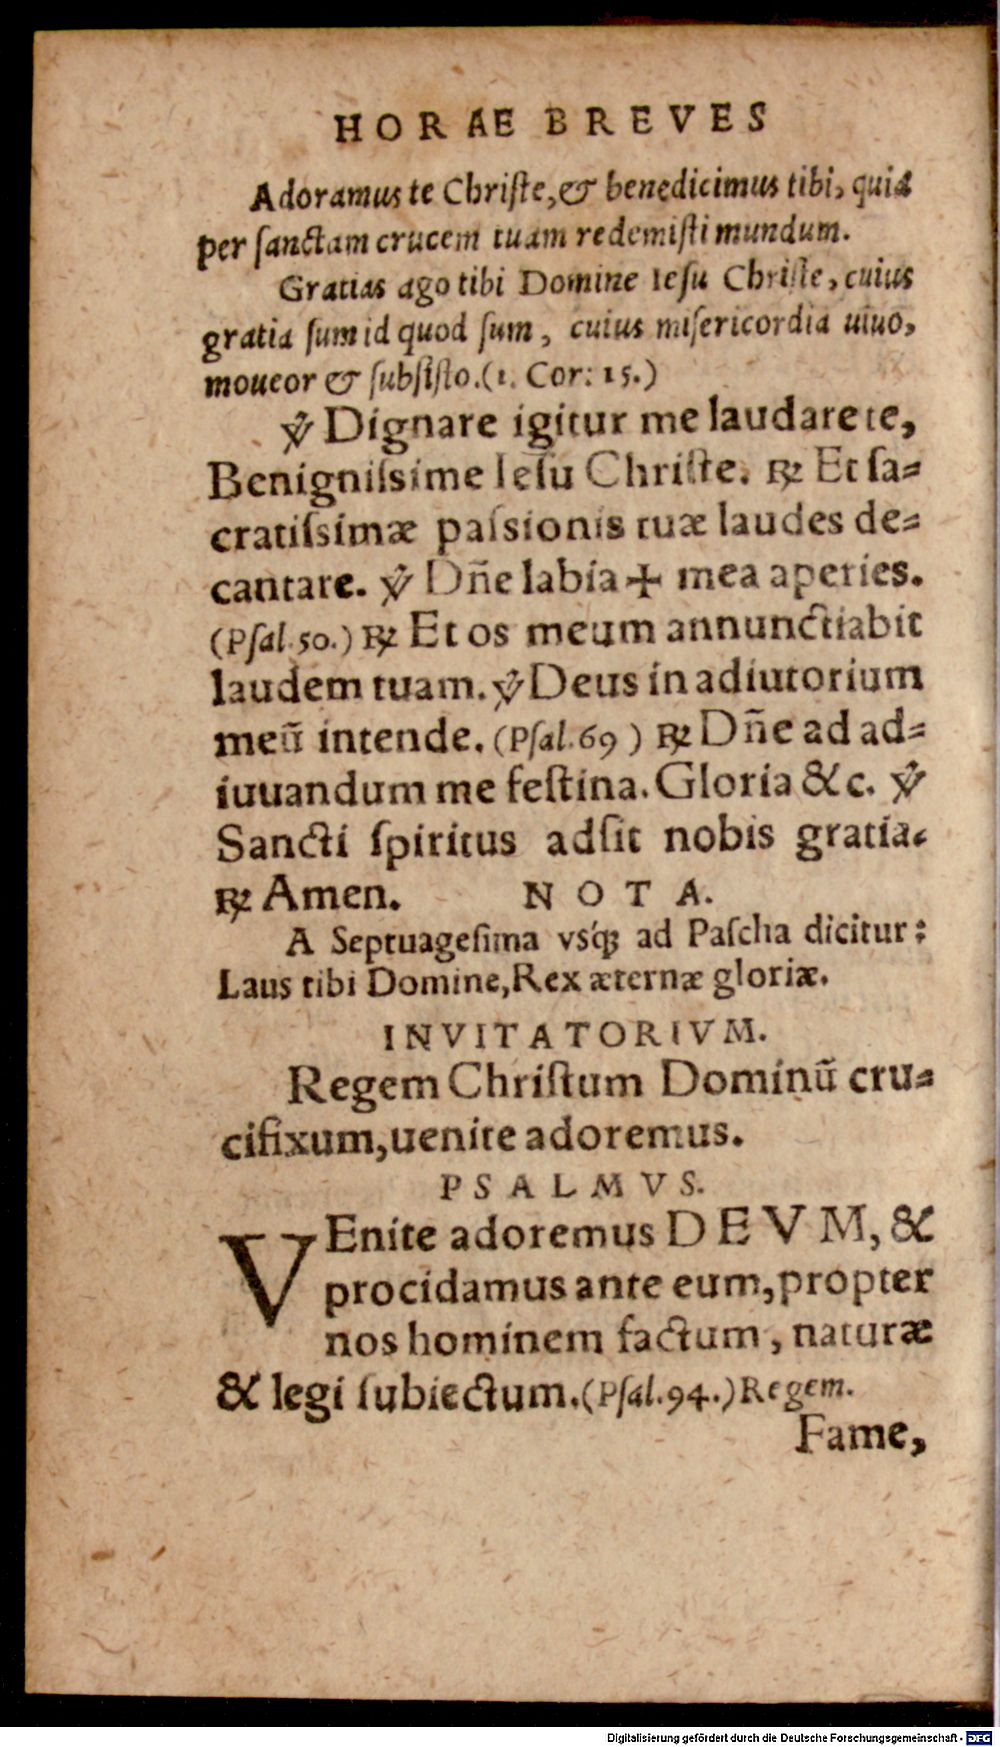 HORAE BREVES
Adoramus te Chriſte, & benedicimus tibi, quia
per ſanctam crucem tuam redemiſti mundum.
Gratias ago tibi Domine Ieſu Chriſte, cuius
gratia ſum id quod ſum, cuius miſericordia uiuo,
moueor & ſubſiſto. (1. Cor: 15.)
℣ Dignare igitur me laudare te,
Benigniſsime Ieſu Chriſte. ℟ Et ſa=
cratiſsimæ paſsionis tuæ laudes de=
cantare. ℣ Dñe labia + mea aperies.
(Pſal. 50.) ℟ Et os meum annunctiabit
laudem tuam. ℣ Deus in adiutorium
meū intende. (Pſal. 69 ) ℟ Dñe ad ad=
iuuandum me feſtina. Gloria &c. ℣
Sancti ſpiritus adſit nobis gratia.
℟ Amen. NOTA.
A Septuageſima vsq́ꝫ ad Paſcha dicitur:
Laus tibi Domine, Rex æternæ gloriæ.
INVITATORIVM.
Regem Chriſtum Dominū cru=
cifixum, uenite adoremus.
PSALMVS.
VEnite adoremus DEVM, &
procidamus ante eum, propter
nos hominem factum, naturæ
& legi ſubiectum. (Pſal. 94.) Regem.
Fame,
Digitalisierung gefördert durch die Deutsche Forschungsgemeinschaft - DFG